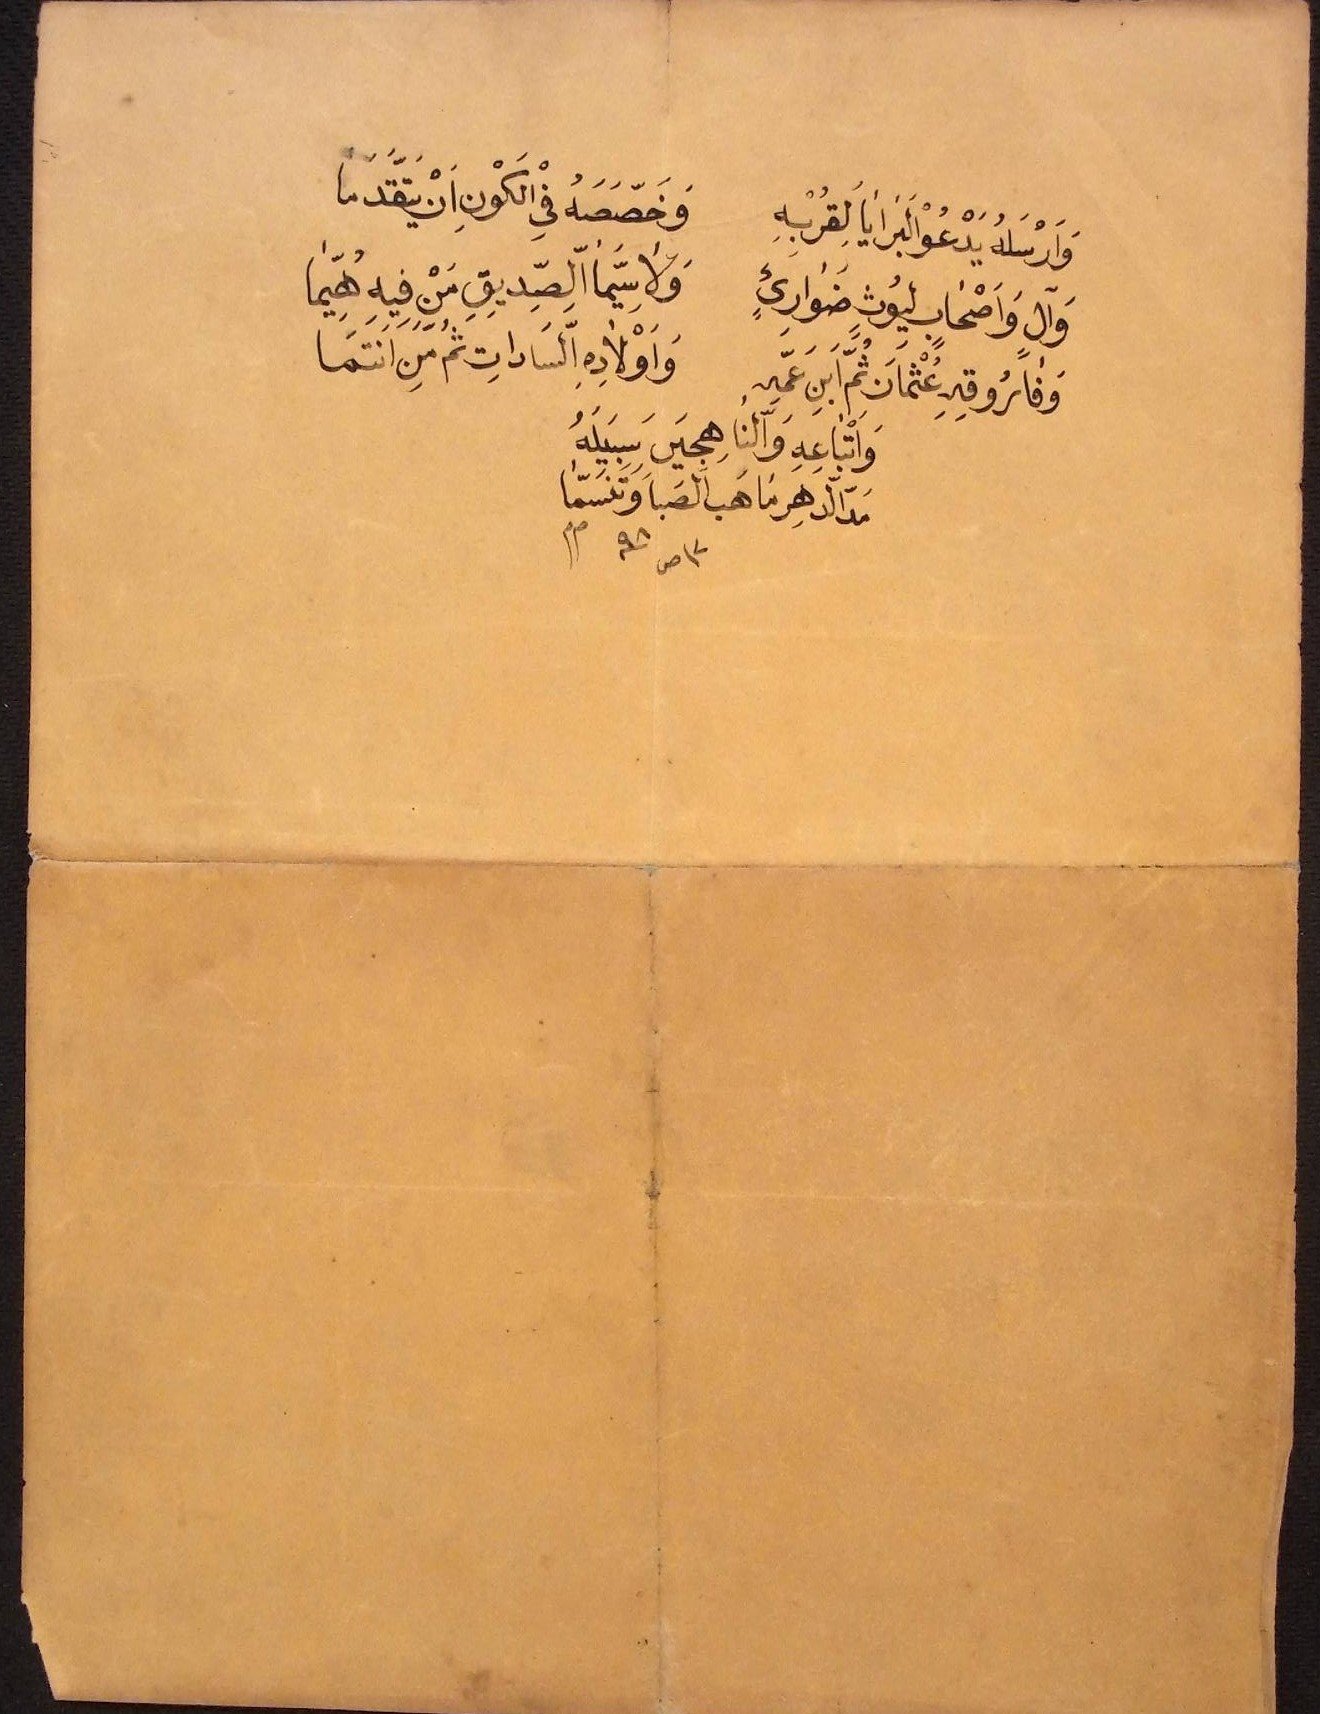 وَاَرْسَلَهُ يَدْعُوْ الْبَرَايَا لِقُرْبِهِ وَخَصَّصَهُ فِي الْكَوْنِ اَنْ يَتَقَدَّمَا
وَآلٍ وَاَصْحَابٍ لُيُوثٍ ضَوَارِئٍ وَلَا سِيَّمَا الصِّدِيقِ مَنْ فِيهِ هُيِّمَا
وَفَارُوقِهِ عُثْمَانَ ثُمَّ ابْنِ عَمِّهِ وَاَوْلَادِهِ السَّادَاتِ ثُمَّ مَنِ انْتَمَا
وَاَتْبَاعِهِ وَالنَّاهِجِينَ سَبِيلَهُ
مَدَا الدَّهِرِ مَا هَب الصَبَا وَتَنَسَّمَا
ص ٩٨